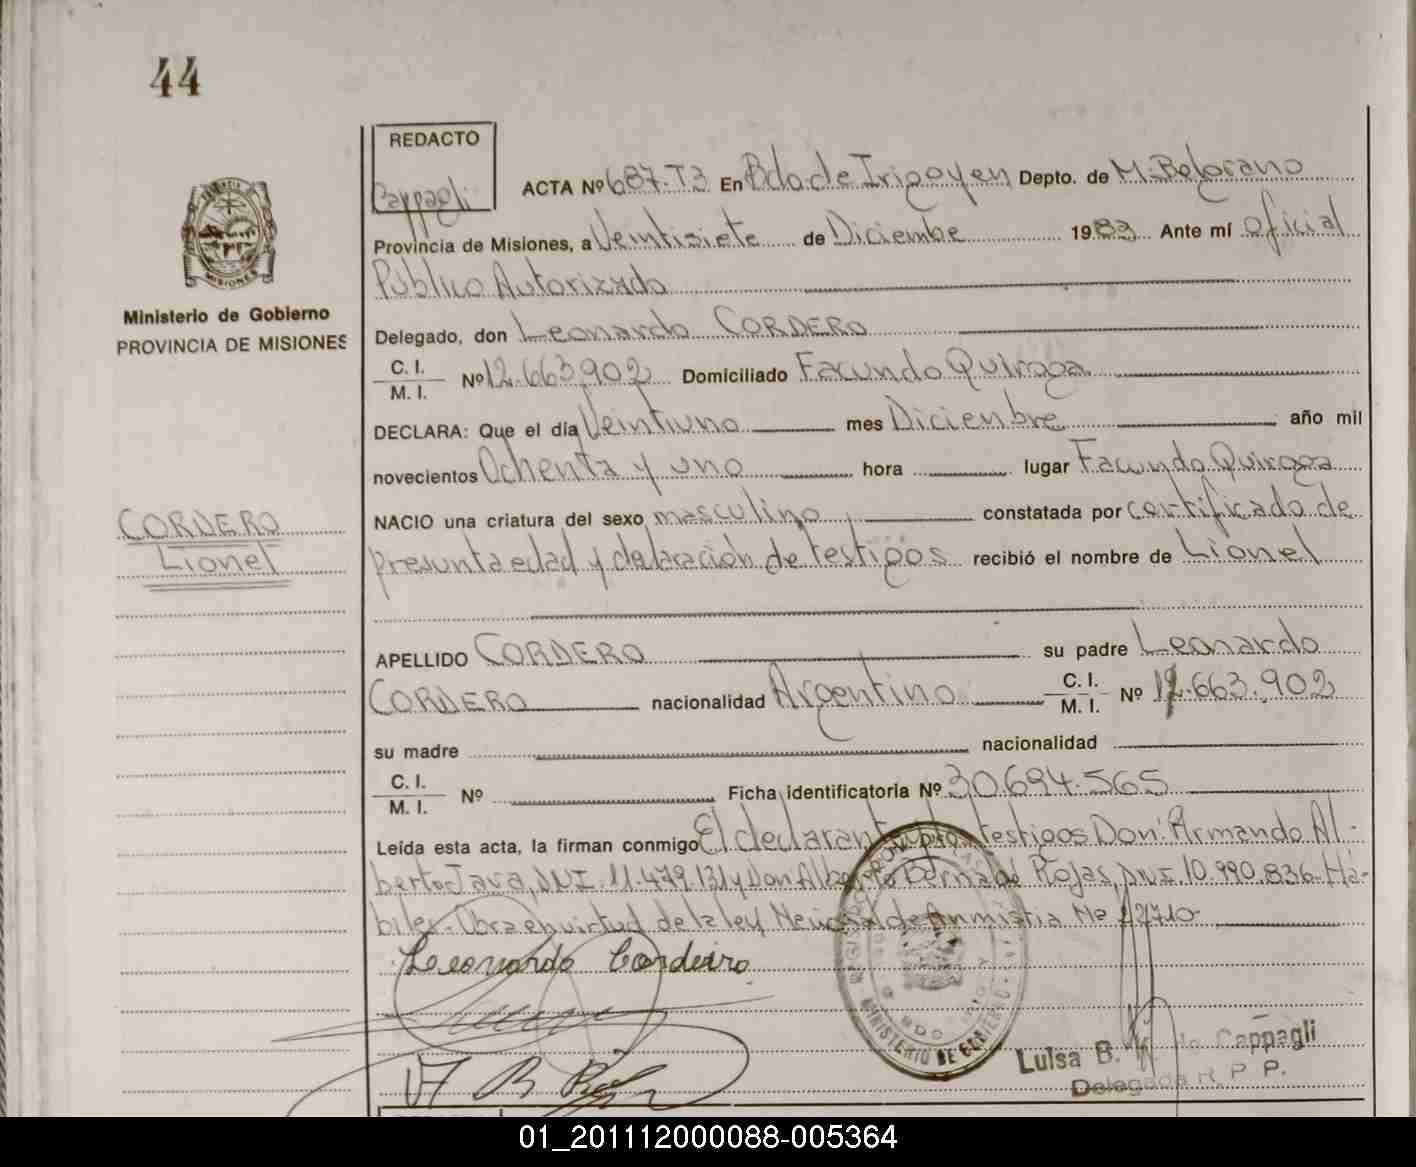 44
REDACTO
Cappagli
ACTA Nº 687-T3 En Bdo de Irigoyen Depto. de M. Belgrano
Provincia de Misiones, a Veintisiete de Diciembe 1983 Ante mí Oficial
Público Autorizado
MISIONES
Ministerio de Gobierno
PROVINCIA DE MISIONES
Delegado, don Leonardo CORDERO
C. I.
M. I. Nº 12.663.902 Domiciliado Facundo Quiroga
DECLARA: Que el día Veintiuno mes Diciembre año mil
novecientos Ochenta y uno hora lugar Facundo Quiroga
CORDERO
Lionel
NACIO una criatura del sexo masculino, constatada por certificado de
presunta edad y declaración de testigos recibió el nombre de Lionel
APELLIDO CORDERO su padre Leonardo
CORDERO nacionalidad Argentino C. I. M. I. Nº 12.663.902
su madre nacionalidad
C. I.
M. I. Nº Ficha identificatoria Nº 30.694.565
Leída esta acta, la firman conmigo El declarante testigos Don: Armando Al-
berto Java, DNI. 11.479.131 y Don Alberto Bernado Rojas, DNI. 10.990.836- Há-
biles- Obra en virtud de la ley de Anmistia Nº 22710-
Leonardo Cordeiro
MINISTERIO DE GOBIERNO
Luisa B. de Cappagli
Delegada R. P. P.
01_201112000088-005364